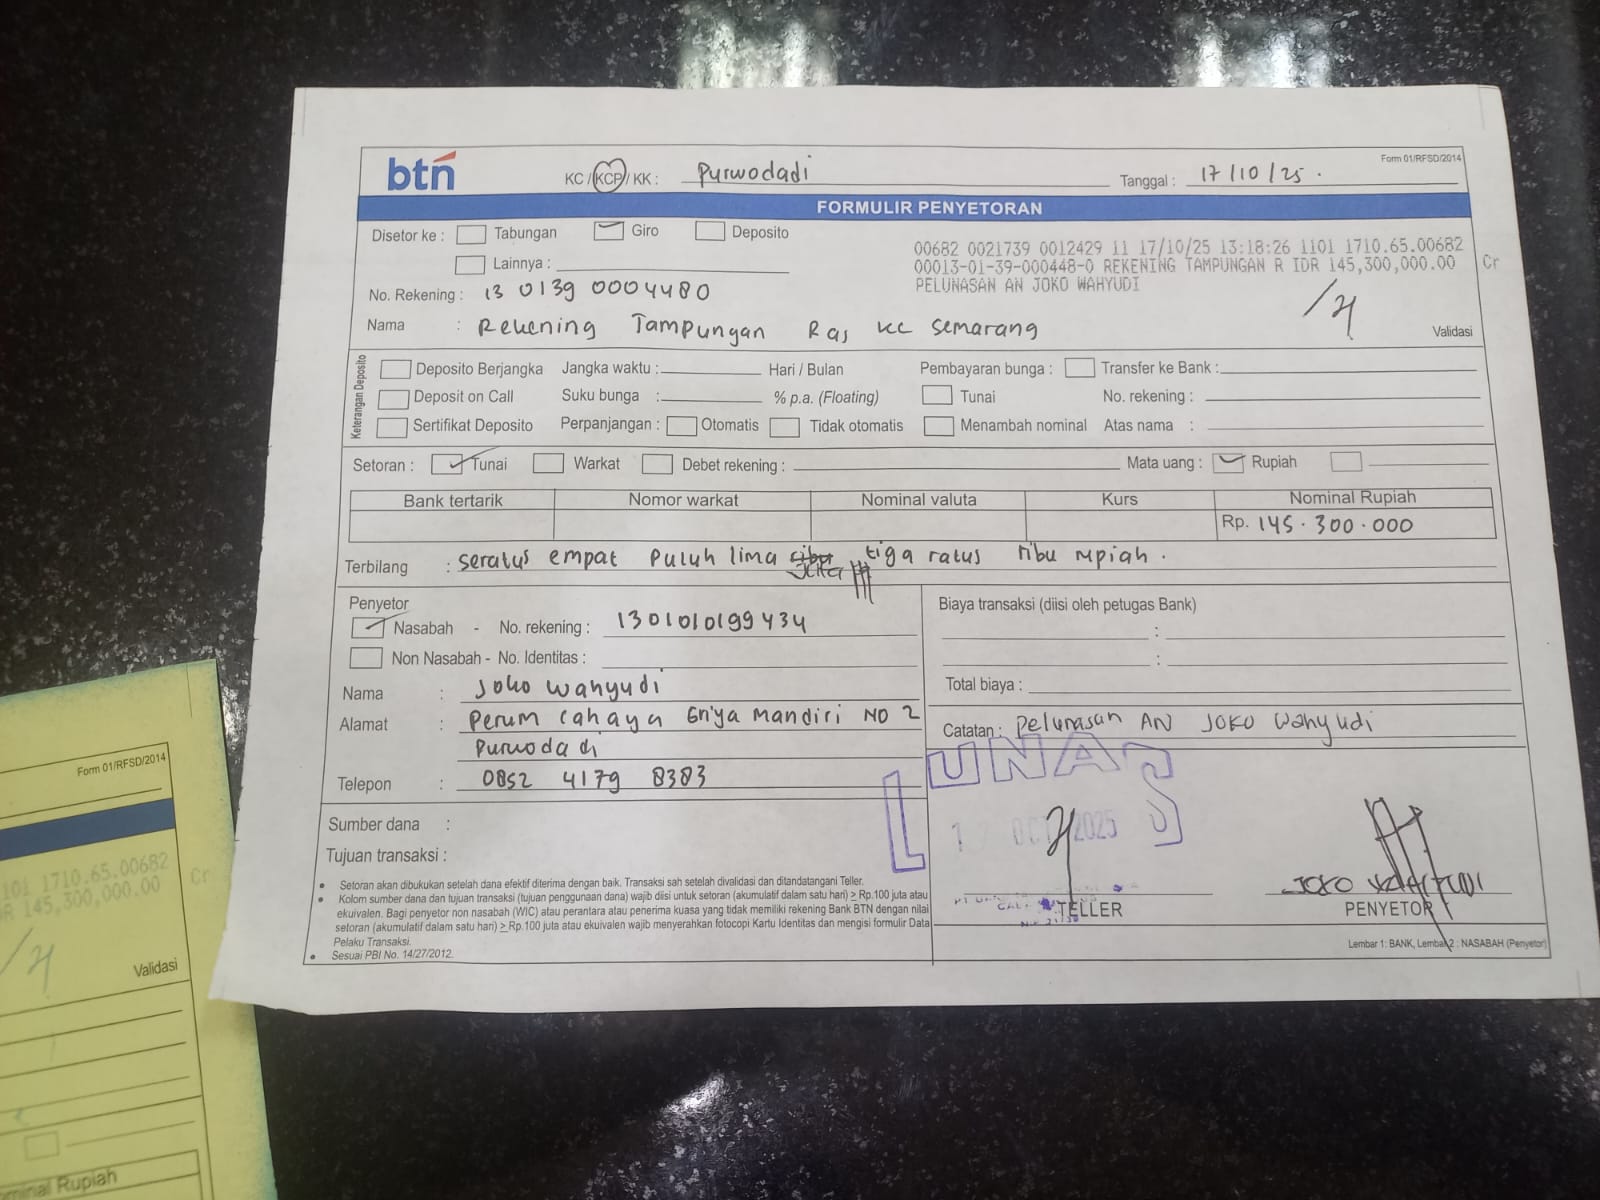 btn KC / KCP / KK : Purwodadi Tanggal : 17/10/25. Form 01/RFSD/2014
FORMULIR PENYETORAN
Disetor ke : Tabungan Giro Deposito
Lainnya :
00682 0021739 0012429 11 17/10/25 13:18:26 1101 1710.65.00682
00013-01-39-000448-0 REKENING TAMPUNGAN R IDR 145,300,000.00 Cr
PELUNASAN AN JOKO WAHYUDI
No. Rekening : 13 0139 0004480
Nama : Rekening Tampungan Ras KC Semarang
Validasi
Keterangan Deposito
Deposito Berjangka Jangka waktu : Hari / Bulan Pembayaran bunga : Transfer ke Bank :
Deposit on Call Suku bunga : % p.a. (Floating) Tunai No. rekening :
Sertifikat Deposito Perpanjangan : Otomatis Tidak otomatis Menambah nominal Atas nama :
Setoran : Tunai Warkat Debet rekening : Mata uang : Rupiah
Bank tertarik Nomor warkat Nominal valuta Kurs Nominal Rupiah
Rp. 145.300.000
Terbilang : seratus empat puluh lima juta tiga ratus ribu rupiah.
Penyetor
Nasabah - No. rekening : 1301010199434
Non Nasabah - No. Identitas :
Nama : Joko Wahyudi
Alamat : Perum Cahaya Griya Mandiri NO 2
Purwodadi
Telepon : 0852 4179 8383
Biaya transaksi (diisi oleh petugas Bank)
:
:
Total biaya :
Catatan : Pelunasan AN JOKO Wahyudi
Sumber dana :
Tujuan transaksi :
LUNAS
OCT 2025
• Setoran akan dibukukan setelah dana efektif diterima dengan baik. Transaksi sah setelah divalidasi dan ditandatangani Teller.
• Kolom sumber dana dan tujuan transaksi (tujuan penggunaan dana) wajib diisi untuk setoran (akumulatif dalam satu hari) ≥ Rp.100 juta atau
ekuivalen. Bagi penyetor non nasabah (WIC) atau perantara atau penerima kuasa yang tidak memiliki rekening Bank BTN dengan nilai
setoran (akumulatif dalam satu hari) ≥ Rp.100 juta atau ekuivalen wajib menyerahkan fotocopi Kartu Identitas dan mengisi formulir Data
Pelaku Transaksi.
• Sesuai PBI No. 14/27/2012.
TELLER
JOKO WAHYUDI
PENYETOR
Lembar 1: BANK, Lembar 2 : NASABAH (Penyetor)
Form 01/RFSD/2014
101 1710.65.00682
R 145,300,000.00 Cr
Validasi
Rupiah